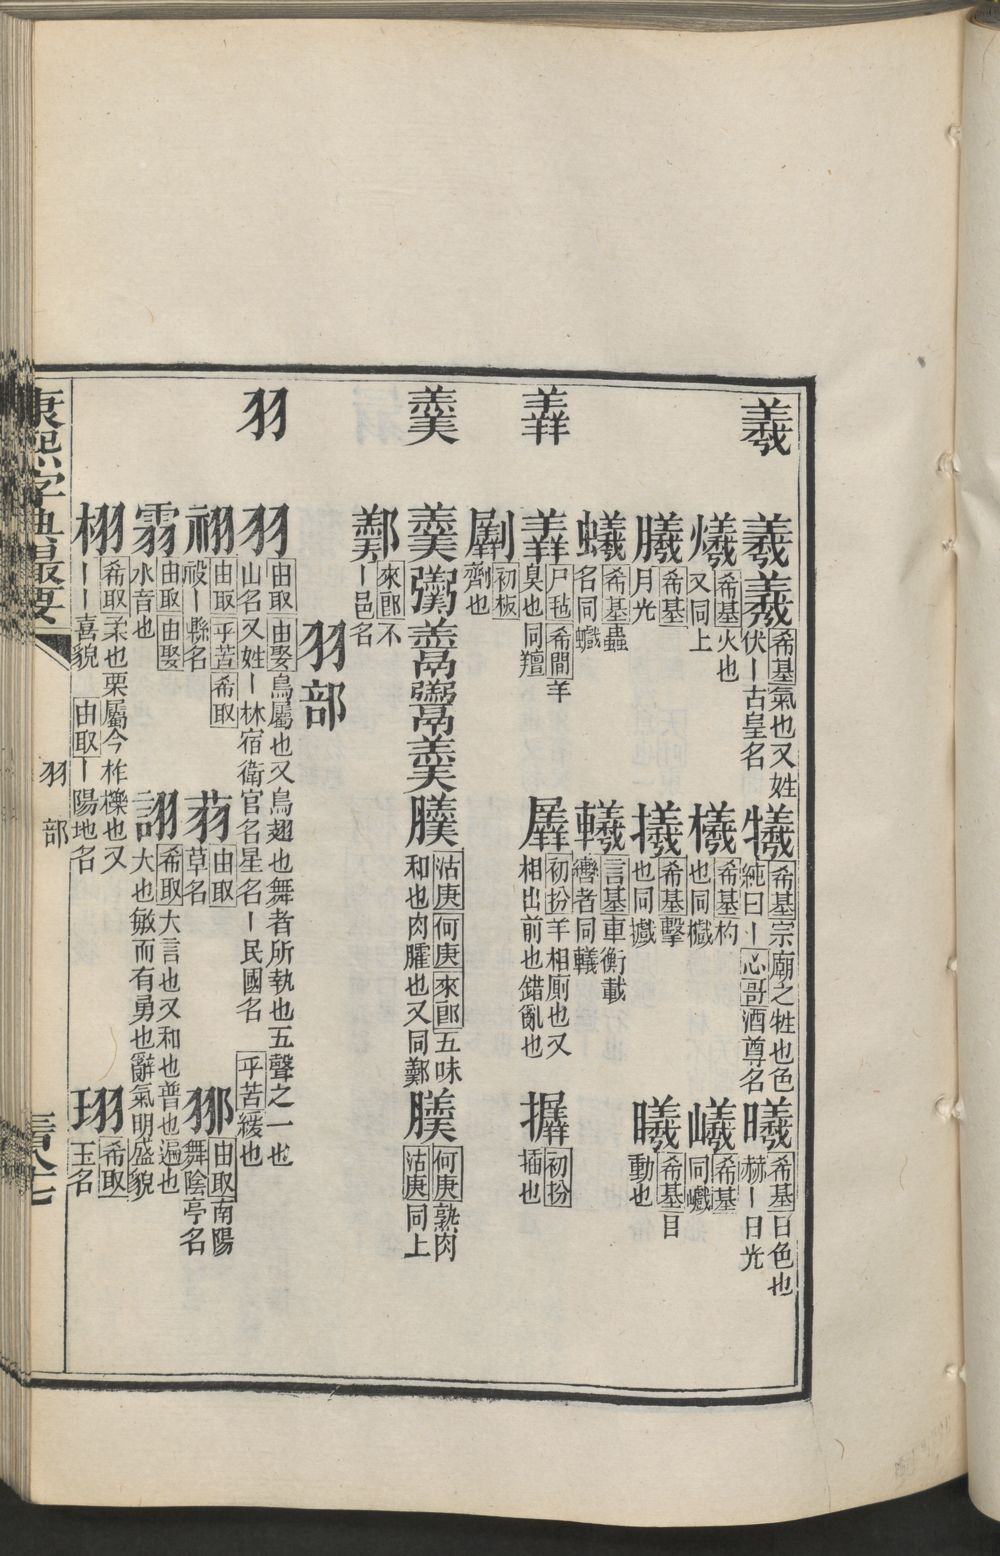 羲
羲 希基 氣也又姓伏丨古皇名 犧 希基 宗廟之牲也色純曰丨 心哥 酒尊名 曦 希基 日色也赫丨日光
爔 希基 火也又同上 㰕 希基 杓也同 㠣 希基 同巇
希基 月光 希基 擊也同 希基 目動也
希基 蟲名同 言基 車衡載轡者同轙
羴
羴 尸毡 希間 羊臭也同羶 羼 初扮 羊相廁也又相出前也錯亂也 初扮 插也
初板 劑也
羹
羹 沽庚 何庚 來郎 五味和也肉臛也又同 何庚 熟肉 沽庚 同上
來郎 不丨邑名
羽部
羽
羽 由取 由娶 鳥屬也又鳥翅也舞者所執也五聲之一也山名又姓丨林宿衛官名星名丨民國名 平苦 緩也
祤 由取 平苦 希取 祋丨縣名 䓲 由取 草名 由取 南陽舞陰亭名
雩 由取 由娶 水音也 詡 希取 大言也又和也普也遍也大也敏而有勇也辭氣明盛貌
栩 希取 柔也栗屬今柞櫟也又丨丨喜貌 由取 丨陽地名 珝 希取 玉名
康熙字典撮要 羽部 三百八十七